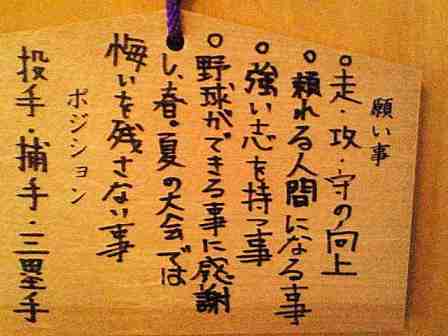 願い事
○走・攻・守の向上
○頼れる人間になる事
○強い志を持つ事
○野球ができる事に感謝
し、春・夏の大会では
悔いを残さない事
ポジション
投手・捕手・三塁手